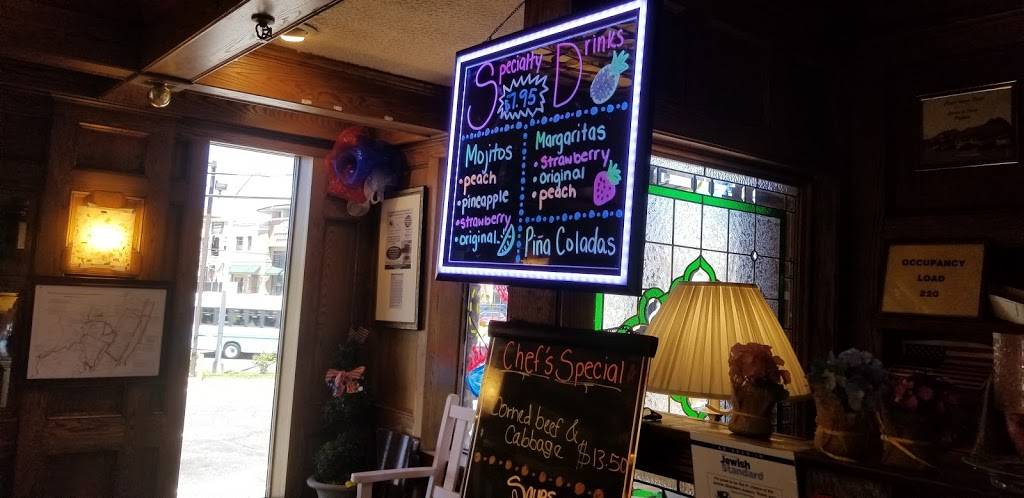 Specialty Drinks
$7.95
Mojitos
• peach
• pineapple
• strawberry
• original
Margaritas
• strawberry
• original
• peach
Piña Coladas
Chef's Special
Corned beef &
Cabbage $13.50
Soups
OCCUPANCY
LOAD
220
Jewish
Standard